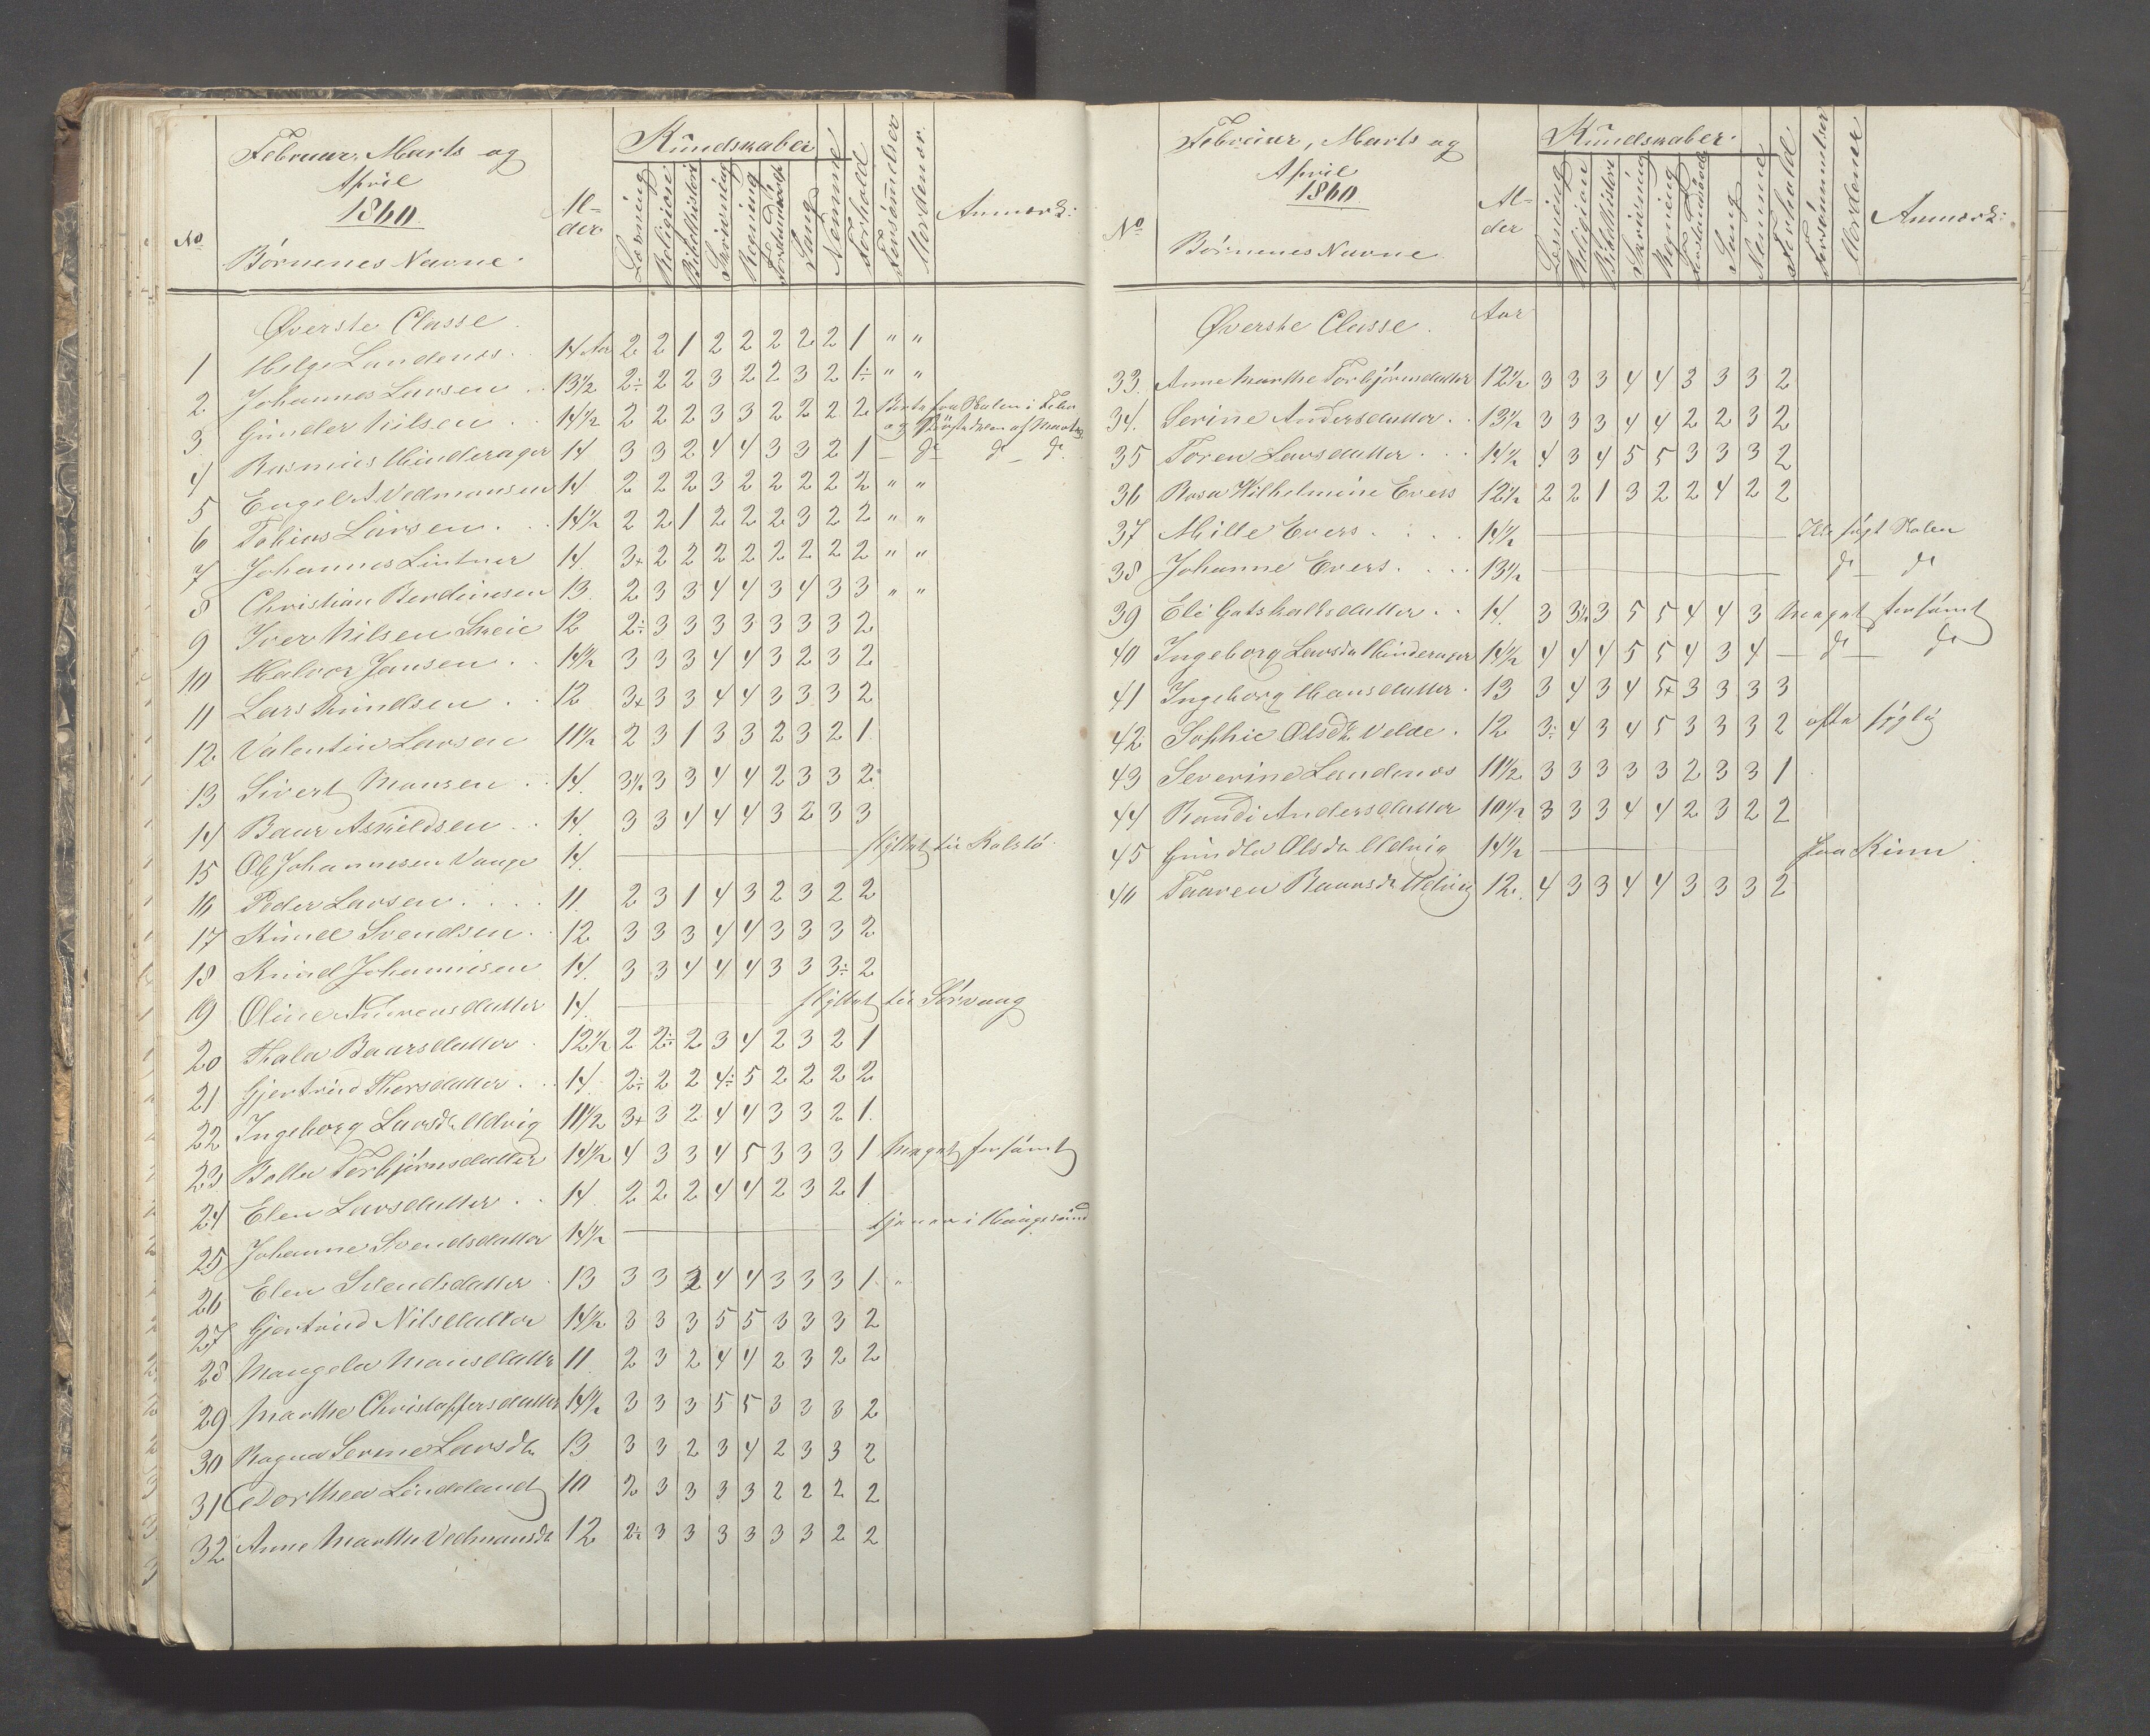 Februar, Marts og
April
1860
No
Børnenes Navne.
Al-
der
Kundskaber
Læsning
Religion
Bibelhistori
Skrivning
Regning
Forstandsøvelse
Sang
Nemme
Forhold
Forsømmelser
Uordener.
Anmærk:
Øverste Classe.
1 Helge Landenes . 14 Aar 2 2 1 2 2 2 2 2 1 " "
2 Johannes Larsen . . 13½ 2÷ 2 2 3 2 2 3 2 1÷ " "
3 Gunder Nilsen . . 14½ 2 2 2 3 3 2 2 2 2 Borte fra Skolen i Febr
og Størstedelen af Marts
4 Rasmus Hinderager 14 3 3 2 4 4 3 3 2 1 – do – do – do
5 Engel A Vedmansen 14 2 2 2 3 2 2 2 2 2 " "
6 Tobias Larsen . . . 14½ 2 2 1 2 2 2 3 2 2 " "
7 Johannes Lintner 14. 3+ 2 2 2 2 2 2 2 2 " "
8 Christian Berdinesen 13. 2 3 3 4 4 3 4 3 3 " "
9 Iver Nilsen Skeie 12 2÷ 3 3 3 3 3 3 3 2
10 Halvor Jansen . . 14½ 3 3 3 4 4 3 2 3 2
11 Lars Knudsen . . 12 3+ 3 3 4 4 3 3 3 2
12 Valentin Larsen 11½ 2 3 1 3 3 2 3 2 1.
13 Sivert Monsen . . 14. 3½ 3 3 4 4 2 3 3 2
14 Baar Askildsen . . 14. 3 3 4 4 4 3 2 3 3
15 Ole Johannesen Vaage 14. flyttet til Kolstø.
16 Peder Larsen . . . . 11. 2 3 1 4 3 2 3 2 2
17 Knud Svendsen . . 12 3 3 3 4 4 3 3 3 2
18 Knud Johannesen 14. 3 3 4 4 4 3 3 3÷ 2
19 Oline Andreasdatter 14. flyttet til Sørvaag
20 Thala Baarsdatter . 12½ 2 2÷ 2 3 4 2 3 2 1
21 Gjertrud Thorsdatter . . 14. 2÷ 2 2 4÷ 5 2 2 2 2
22 Ingeborg Larsdr Udvig 11½ 3+ 3 2 4 4 3 3 2 1.
23 Bolla Torbjørnsdatter 14½ 4 3 3 4 5 3 3 3 1 Meget forsømt
24 Elen Larsdatter . . 14. 2 2 2 4 4 2 3 2 1.
25 Johanne Svendsdatter 14½ tjener i Haugesund
26 Elen Svendsdatter . 13 3 3 2 4 4 3 3 3 1. "
27 Gjertrud Nilsdatter 14½ 3 3 3 5 5 3 3 3 2
28 Mangela Monsdatter 11. 2 3 2 4 4 2 3 2 2
29 Marthe Christoffersdatter 14½ 3 3 3 5 5 3 3 3 2
30 Ragna Serine Larsdr 13. 3 3 2 3 4 2 3 3 2
31 Dorthea Lindeland 10 2 3 3 3 3 2 2 2 2
32 Anne Marthe Vedmansdr 12 2½ 3 3 3 3 3 3 2 2
Februar, Marts og
April
1860.
No
Børnenes Navne
Al-
der
Kundskaber.
Læsning
Religion
Bibelhistori
Skrivning
Regning
Forstandsøvelse
Sang
Nemme
Forhold
Forsømmelser
Uordener
Anmærk:
Øverste Classe. Aar
33. Anne Marthe Torbjørnsdatter 12½ 3 3 3 4 4 3 3 3 2
34. Serine Andersdatter . . 13½ 3 3 3 4 4 2 2 3 2
35 Toren Larsdatter . . . 14½ 4 3 4 5 5 3 3 3 2
36 Rosa Wilhelmine Evers 12½ 2 2 1 3 2 2 4 2 2
37 Mille Evers . . . . 14½ Ikke søgt Skolen
38 Johanne Evers . . . . 13½ do – do
39 Eli Gotskalksdatter . . 14. 3 3½ 3 5 5 4 4 3 Meget forsømt
40 Ingeborg Larsdr Hinderager 14½ 4 4 4 5 5 4 3 4 – do – do
41 Ingeborg Hansdatter . 13 3 4 3 4 5+ 3 3 3 3
42 Sophie Olsdr Velde . 12 3÷ 4 3 4 5 3 3 3 2 ofte syglig
43 Severine Landenes 11½ 3 3 3 3 3 2 3 3 1
44 Randi Andersdatter 10½ 3 3 3 4 4 2 3 2 2
45 Gundla Olsdr Udvig 14½ paa Kinn.
46 Taaren Baarsdr Udvig 12. 4 3 3 4 4 3 3 3 2